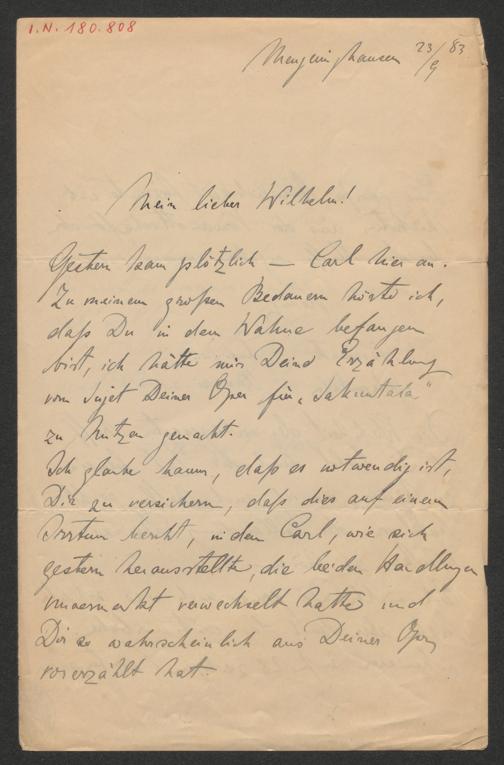 I.N. 180.808
Mengeringhausen 23/9 83
Mein lieber Wilhelm!
Gestern kam plötzlich — Carl hier an.
Zu meinem großen Bedauern hörte ich,
daß Du in dem Wahne befangen
bist, ich hätte mir Deine Erzählung
vom Sujet Deiner Oper für „Sakuntala"
zu Nutzen gemacht.
Ich glaube kaum, daß es notwendig ist,
Dir zu versichern, daß dies auf einem
Irrtum beruht, indem Carl, wie sich
gestern herausstellte, die beiden Handlungen
unvermerkt verwechselt hatte und
Dir so wahrscheinlich aus Deiner Oper
vorerzählt hat.